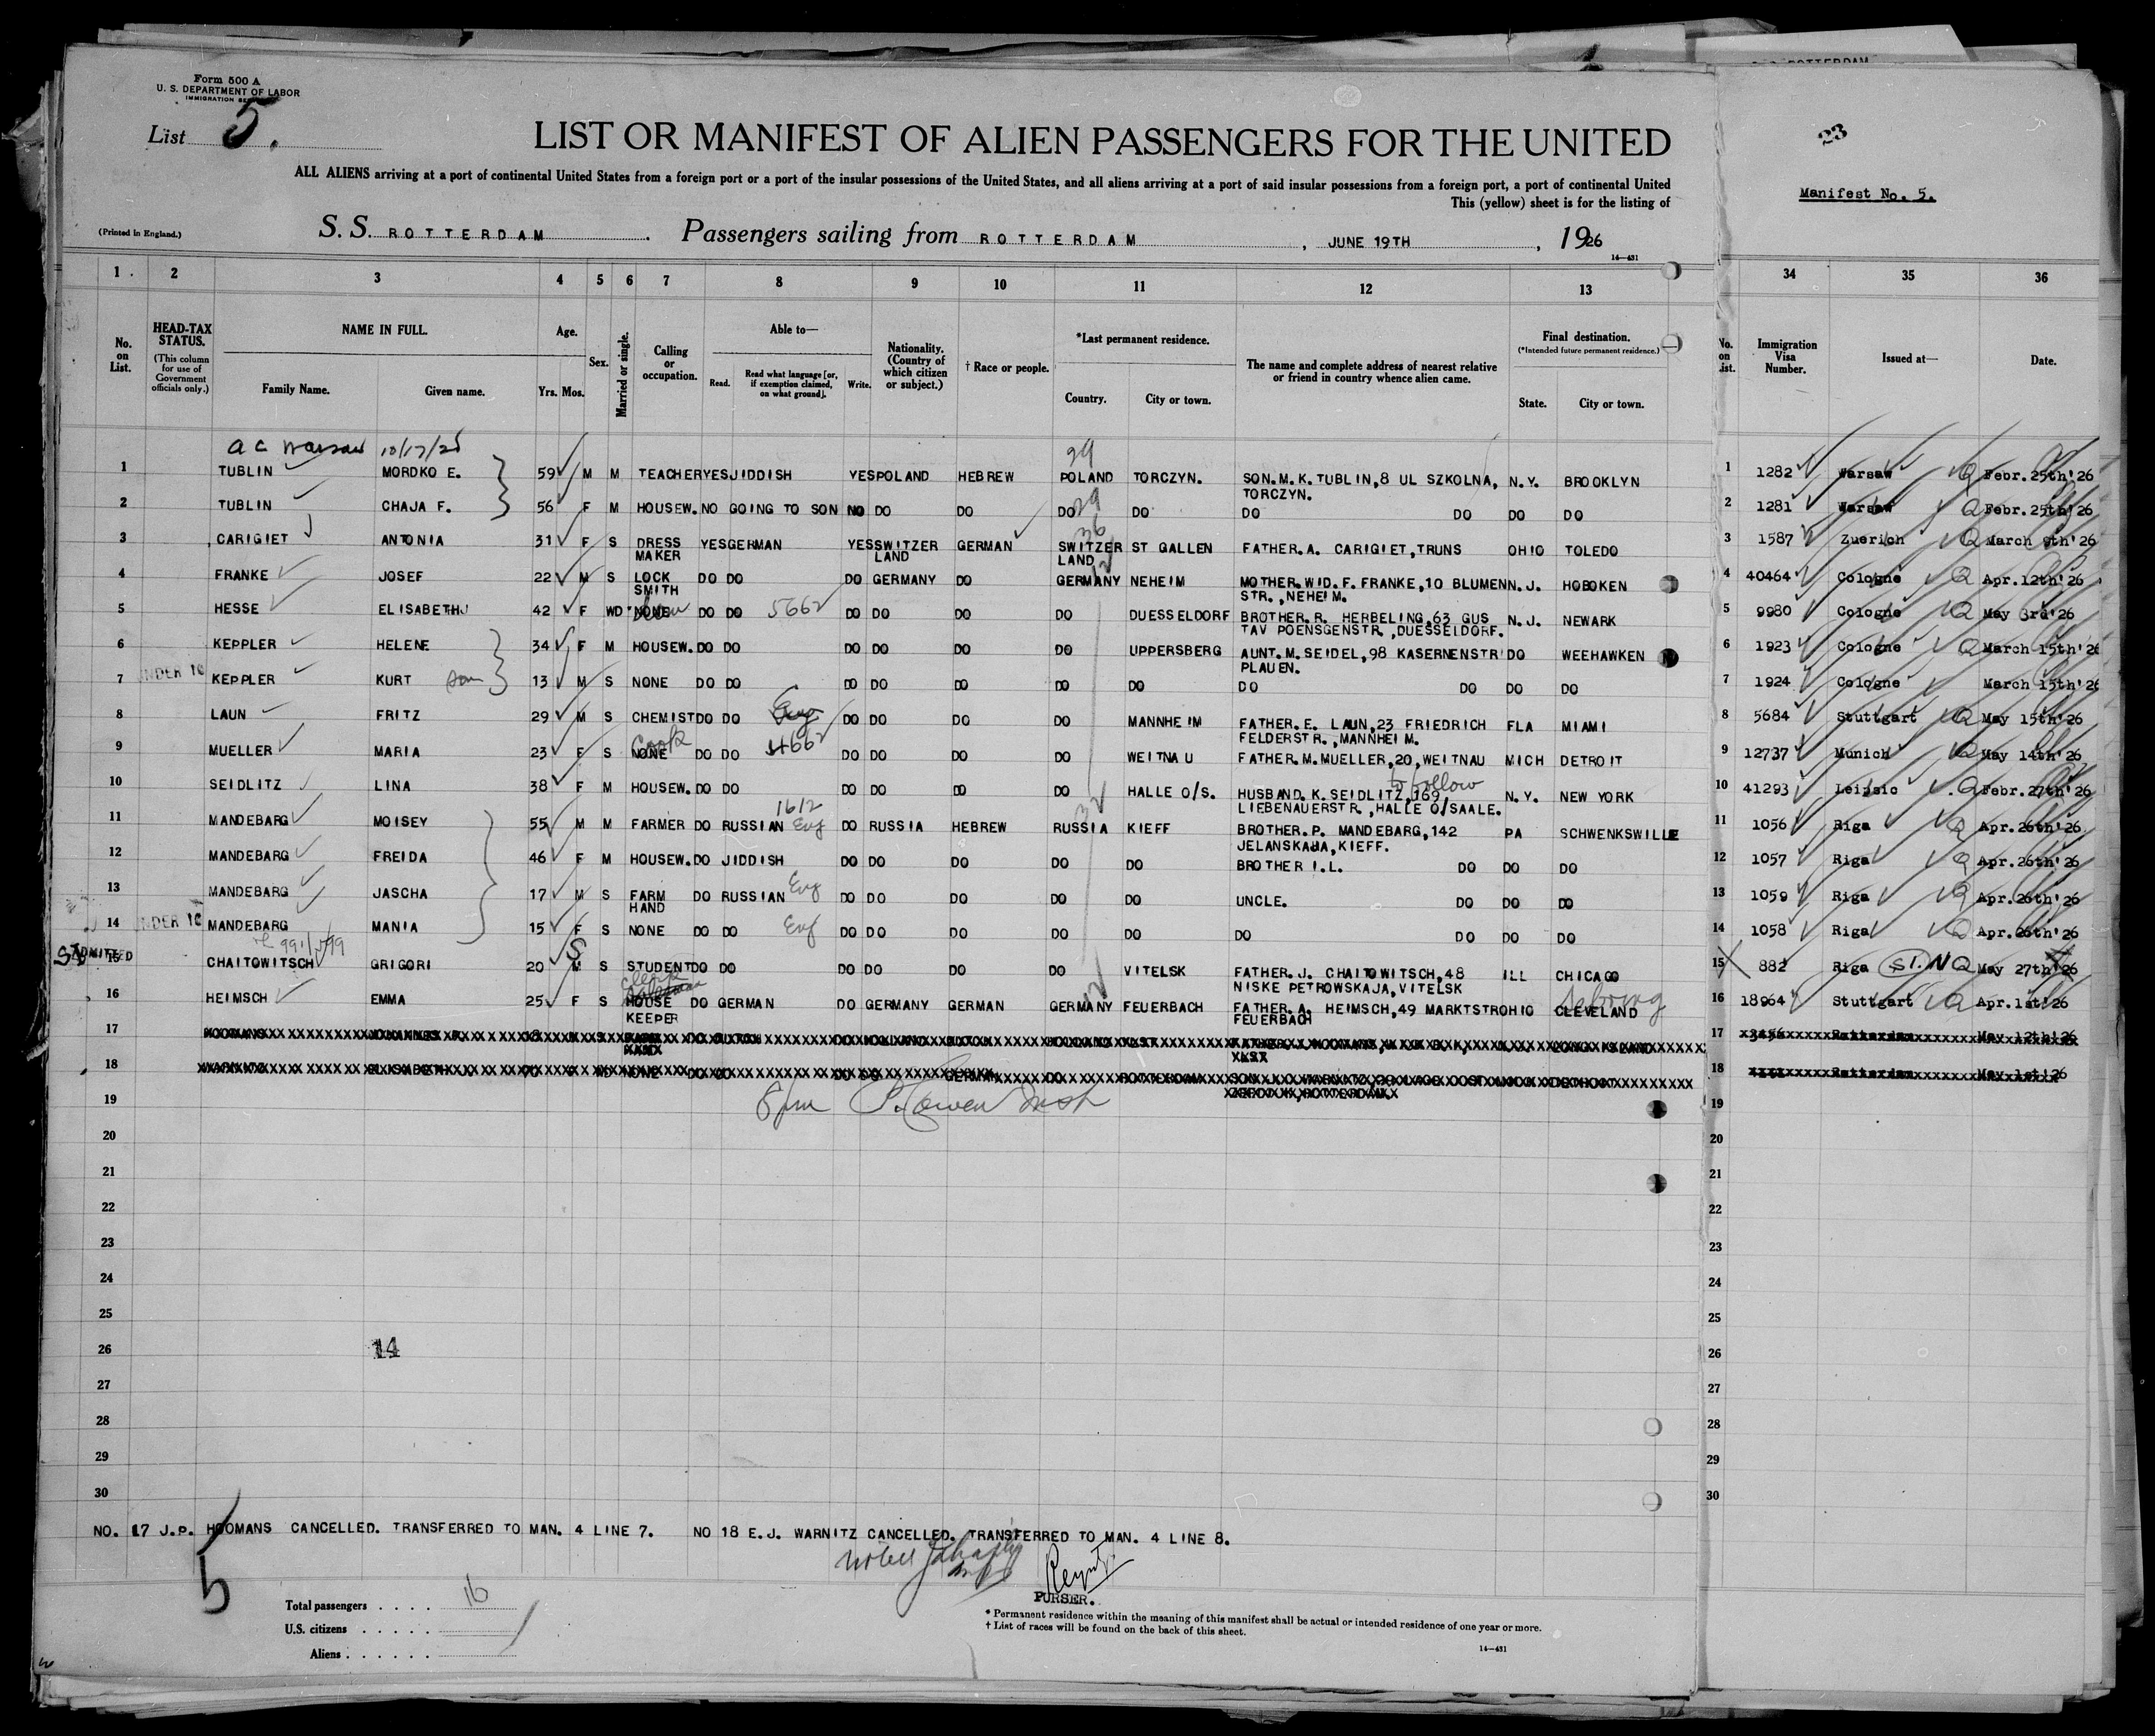 Form 500 A
U. S. DEPARTMENT OF LABOR
IMMIGRATION
List 5.
LIST OR MANIFEST OF ALIEN PASSENGERS FOR THE UNITED
ALL ALIENS arriving at a port of continental United States from a foreign port or a port of the insular possessions of the United States, and all aliens arriving at a port of said insular possessions from a foreign port, a port of continental United
This (yellow) sheet is for the listing of
(Printed in England.)
S. S. ROTTERDAM Passengers sailing from ROTTERDAM, JUNE 19TH, 1926
14—431
23
Manifest No. 5.
1 2 3 4 5 6 7 8 9 10 11 12 13 34 35 36
No. on List.
HEAD-TAX STATUS.
(This column for use of Government officials only.)
NAME IN FULL.
Family Name. Given name.
Age.
Yrs. Mos.
Sex.
Married or single.
Calling or occupation.
Able to—
Read. Read what language [or, if exemption claimed, on what ground]. Write.
Nationality. (Country of which citizen or subject.)
† Race or people.
*Last permanent residence.
Country. City or town.
The name and complete address of nearest relative or friend in country whence alien came.
Final destination.
(*Intended future permanent residence.)
State. City or town.
No. on List.
Immigration Visa Number.
Issued at—
Date.
a c Warsaw 10/17/25
29
1 TUBLIN MORDKO E. 59 M M TEACHER YES JIDDISH YES POLAND HEBREW POLAND TORCZYN. SON.M.K.TUBLIN,8 UL SZKOLNA, N.Y. BROOKLYN 1 1282 Warsaw Q Febr.25th'26
TORCZYN.
2 TUBLIN CHAJA F. 56 F M HOUSEW. NO GOING TO SON NO DO DO DO 29 DO DO DO DO DO 2 1281 Warsaw Q Febr.25th'26
36
3 CARIGIET ANTONIA 31 F S DRESS YES GERMAN YES SWITZER GERMAN SWITZER ST GALLEN FATHER.A. CARIGIET,TRUNS OHIO TOLEDO 3 1587 Zuerich Q March 9th'26
MAKER LAND LAND
12
4 FRANKE JOSEF 22 M S LOCK DO DO DO GERMANY DO GERMANY NEHEIM MOTHER.WID.F.FRANKE,10 BLUMEN N.J. HOBOKEN 4 40464 Cologne Q Apr.12th'26
SMITH STR.,NEHEIM.
5 HESSE ELISABETH 42 F WD NONE DO DO 5662 DO DO DO DO DUESSELDORF BROTHER.R. HERBELING,63 GUS N.J. NEWARK 5 9980 Cologne Q May 3rd'26
TAV POENSGENSTR.,DUESSELDORF.
6 KEPPLER HELENE 34 F M HOUSEW. DO DO DO DO DO DO UPPERSBERG AUNT.M.SEIDEL,98 KASERNENSTR DO WEEHAWKEN 6 1923 Cologne Q March 15th'26
PLAUEN.
UNDER 16
7 KEPPLER KURT son 13 M S NONE DO DO DO DO DO DO DO DO DO DO DO 7 1924 Cologne March 15th'26
8 LAUN FRITZ 29 M S CHEMIST DO DO Eng DO DO DO DO MANNHEIM FATHER.E. LAUN,23 FRIEDRICH FLA MIAMI 8 5684 Stuttgart Q May 15th'26
FELDERSTR.,MANNHEIM.
Cook 4662
9 MUELLER MARIA 23 F S NONE DO DO DO DO DO DO WEITNAU FATHER.M.MUELLER,20,WEITNAU MICH DETROIT 9 12737 Munich Q May 14th'26
to follow
10 SEIDLITZ LINA 38 F M HOUSEW. DO DO DO DO DO DO HALLE O/S. HUSBAND.K.SEIDLITZ,169 N.Y. NEW YORK 10 41293 Leipsic Q Febr.27th'26
LIEBENAUERSTR.,HALLE O/SAALE.
1612
11 MANDEBARG MOISEY 55 M M FARMER DO RUSSIAN Eng DO RUSSIA HEBREW RUSSIA KIEFF BROTHER.P. MANDEBARG,142 PA SCHWENKSWILLE 11 1056 Riga Q Apr.26th'26
JELANSKAJA,KIEFF.
12 MANDEBARG FREIDA 46 F M HOUSEW. DO JIDDISH DO DO DO DO DO BROTHER I.L. DO DO DO 12 1057 Riga Q Apr.26th'26
13 MANDEBARG JASCHA 17 M S FARM DO RUSSIAN Eng DO DO DO DO DO UNCLE. DO DO DO 13 1059 Riga Q Apr.26th'26
HAND
UNDER 16
14 MANDEBARG MANIA 15 F S NONE DO DO Eng DO DO DO DO DO DO DO DO DO 14 1058 Riga Q Apr.26th'26
ADMITTED
15 CHAITOWITSCH GRIGORI 20 M S STUDENT DO DO DO DO DO DO VITELSK FATHER.J. CHAITOWITSCH,48 ILL CHICAGO 15 882 Riga ST. NQ May 27th'26
NISKE PETROWSKAJA,VITELSK
Clerk
Sebring
16 HEIMSCH EMMA 25 F S HOUSE DO GERMAN DO GERMANY GERMAN GERMANY FEUERBACH FATHER.A. HEIMSCH,49 MARKTSTR OHIO CLEVELAND 16 18964 Stuttgart Q Apr.1st'26
KEEPER FEUERBACH
17 17 3456 Rotterdam May 12th'26
18 18 Rotterdam May 1st'26
19 19
20 20
21 21
22 22
23 23
24 24
25 25
26 14 26
27 27
28 28
29 29
30 30
NO. 17 J.P. HOOMANS CANCELLED. TRANSFERRED TO MAN. 4 LINE 7. NO 18 E.J. WARNITZ CANCELLED. TRANSFERRED TO MAN. 4 LINE 8.
5
PURSER.
Total passengers . . . . 16
U.S. citizens . . . . .
Aliens . . . . . .
* Permanent residence within the meaning of this manifest shall be actual or intended residence of one year or more.
† List of races will be found on the back of this sheet.
14—431